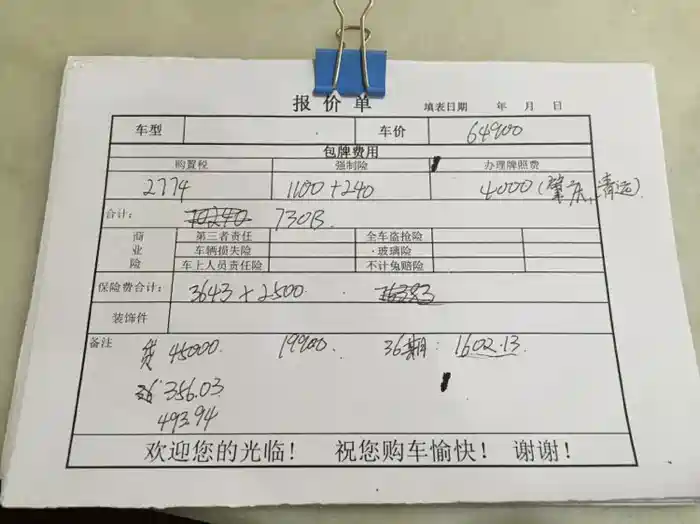 报价单 填表日期 年 月 日
车型 车价 64900
包牌费用
购置税 强制险 办理牌照费
2774 1100+240 4000(肇庆,清远)
合计: 10240 7308
商业险 第三者责任 全车盗抢险
车辆损失险 玻璃险
车上人员责任险 不计免赔险
保险费合计: 3643+2500 16383
装饰件
备注 贷 45000 19900 36期: 1602.13
356.03
493.94
欢迎您的光临! 祝您购车愉快! 谢谢!